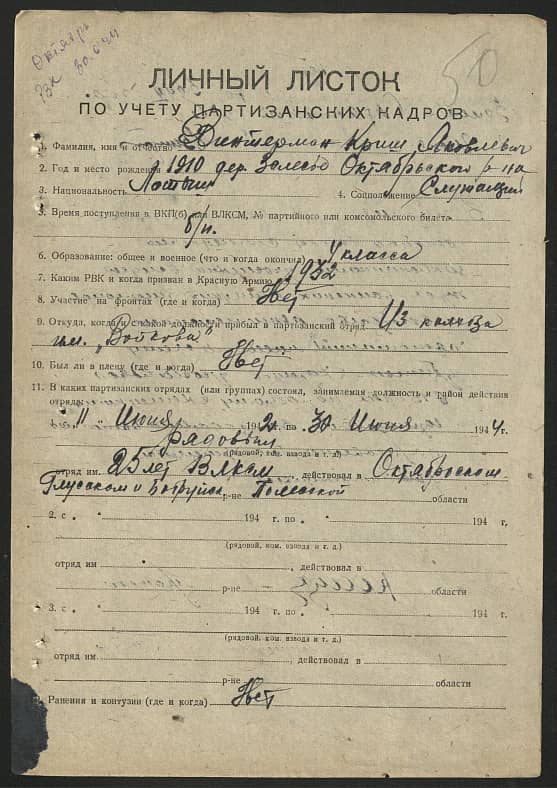 Октябрь
РВК 30.6.44
50
ЛИЧНЫЙ ЛИСТОК
ПО УЧЕТУ ПАРТИЗАНСКИХ КАДРОВ
1. Фамилия, имя и отчество Винтерман Криш Яковлевич
2. Год и место рождения 1910 дер. Залесье Октябрьского р-на
3. Национальность Латыш 4. Соцположение Служащий
5. Время поступления в ВКП(б) или ВЛКСМ, № партийного или комсомольского билета
б/п.
6. Образование: общее и военное (что и когда окончил) 4 класса
7. Каким РВК и когда призван в Красную Армию 1932
8. Участие на фронтах (где и когда) Нет
9. Откуда, когда и с какой должности прибыл в партизанский отряд Из колхоза
им.
10. Был ли в плену (где и когда) Нет
11. В каких партизанских отрядах (или группах) состоял, занимаемая должность и район действия
отряда: " 11 " Июня 1942 г. по 30 Июня 1944 г.
рядовым
(рядовой, ком. взвода и т. д.)
отряд им. 25 лет ВЛКСМ, действовал в Октябрьском
Глусском и Бобруйск. р-не Полесской области
2. с 194 г. по 194 г,
(рядовой. ком. взвода и т. д.)
отряд им , действовал в
р-не области
3. с 194 г. по 194 г,
(рядовой. ком. взвода и т. д.)
отряд им. действовал в
р-не области
Ранения и контузии (где и когда) Нет